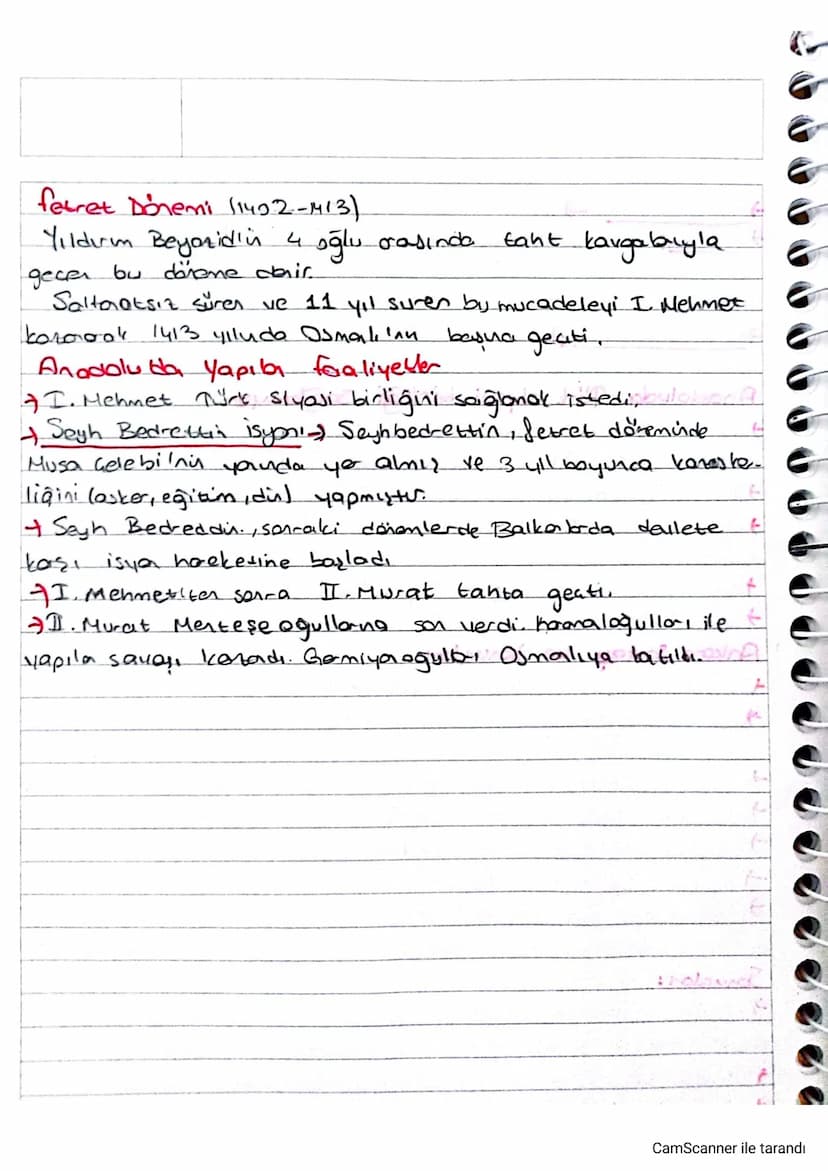 fetret Dönemi (1402-1413)
Yıldırım Beyazid'in 4 oğlu arasında taht kavgalarıyla
geçen bu döneme denir.
Saltanatsız süren ve 11 yıl suren bu mucadeleyi I. Mehmet
kazanarak 1413 yılında Osmanlı'nın başına geçti.
Anadolu'da Yapılan faaliyetler
→ I. Mehmet Türk siyasi birliğini sağlamak istedi.
→ Seyh Bedrettin isyanı → Seyhbedrettin, fetret döneminde
Musa Çelebi'nin yanında yer almış ve 3 yıl boyunca kazaske-
liğini (asker, eğitim, din) yapmıştır.
→ Seyh Bedreddin, sonraki dönemlerde Balkanlarda devlete
karşı isyan hareketine başladı
→ I. Mehmet'ten sonra II. Murat tahta geçti.
→ II. Murat Menteşeoğullarına son verdi. Karamaloğulları ile
yapılan savaşı kazandı. Germiyanoğulları Osmalıya katıldı.
CamScanner ile tarandı